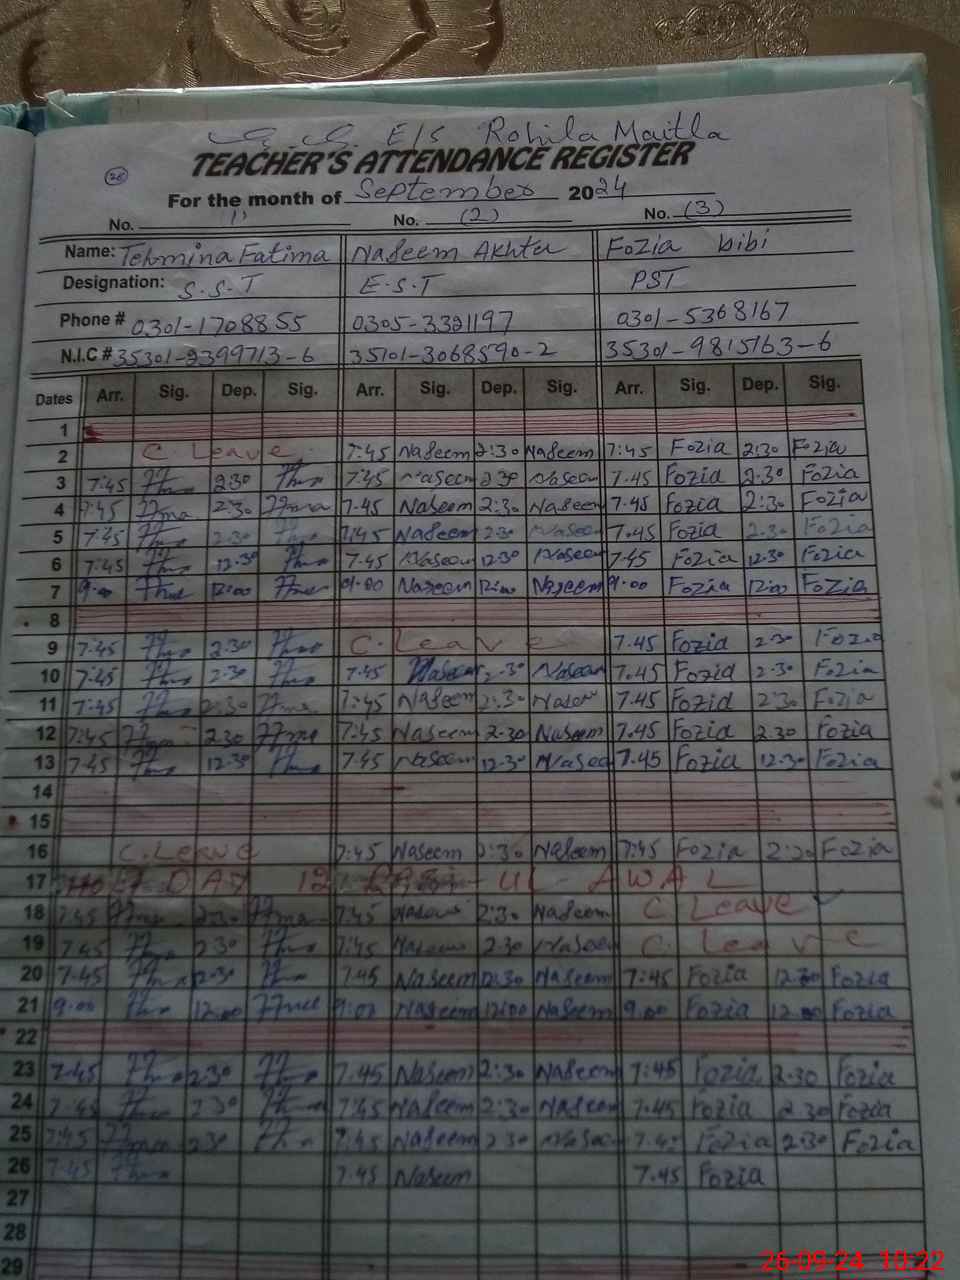 E/S Rohila Maitla
TEACHER'S ATTENDANCE REGISTER
26
For the month of September 2024
No. 1 No. (2) No. (3)
Name: Tehmina Fatima Naseem Akhta Fozia bibi
Designation: S.S.T E.S.T PST
Phone # 0301-1708855 0305-3321197 0301-5368167
N.I.C # 35301-2399713-6 35101-3068590-2 35301-9815163-6
Dates Arr. Sig. Dep. Sig. Arr. Sig. Dep. Sig. Arr. Sig. Dep. Sig.
1
2 C. Leave 7:45 Naseem 2:30 Naseem 7:45 Fozia 2:30 Fozia
3 7:45 2:30 7:45 Naseem 2:30 Naseem 7.45 Fozia 2.30 Fozia
4 7:45 2:30 7.45 Naseem 2:30 Naseem 7.45 Fozia 2:30 Fozia
5 7:45 2:30 7:45 Naseem 2:30 Naseem 7.45 Fozia 2.30 Fozia
6 7:45 12.30 7.45 Naseem 12:30 Naseem 7:45 Fozia 12.30 Fozia
7 9.00 12:00 9:00 Naseem 12:00 Naseem 9.00 Fozia 12:00 Fozia
8
9 7:45 2:30 C. Leave 7.45 Fozia 2.30 Fozia
10 7:45 2.30 7.45 Naseem 2.30 Naseem 7.45 Fozia 2.30 Fozia
11 7:45 2:30 7:45 Naseem 2:30 7.45 Fozia 2:30 Fozia
12 7:45 2.30 7:45 Naseem 2.30 Naseem 7.45 Fozia 2.30 Fozia
13 7.45 12.30 7.45 Naseem 12.30 Naseem 7.45 Fozia 12.30 Fozia
14
15
16 C. Leave 7:45 Naseem 2:30 Naseem 7:45 Fozia 2:30 Fozia
17 DAY 12 UL AWAL
18 7.45 2:30 7:45 2:30 Naseem C. Leave
19 7.45 2.30 7:45 2.30 Naseem C. Leave
20 7.45 12.30 7.45 Naseem 12:30 Naseem 7:45 Fozia 12.30 Fozia
21 9.00 12.00 9:00 Naseem 12:00 Naseem 9.00 Fozia 12.00 Fozia
22
23 7.45 2:30 7.45 Naseem 2:30 Naseem 7:45 Fozia 2.30 Fozia
24 7.45 2.30 7:45 Naseem 2:30 Naseem 7.45 Fozia 2.30 Fozia
25 7:45 2.30 7:45 Naseem 2.30 Naseem Fozia 2:30 Fozia
26 7.45 7.45 Naseem 7.45 Fozia
27
28
29
26-09-24 10:22